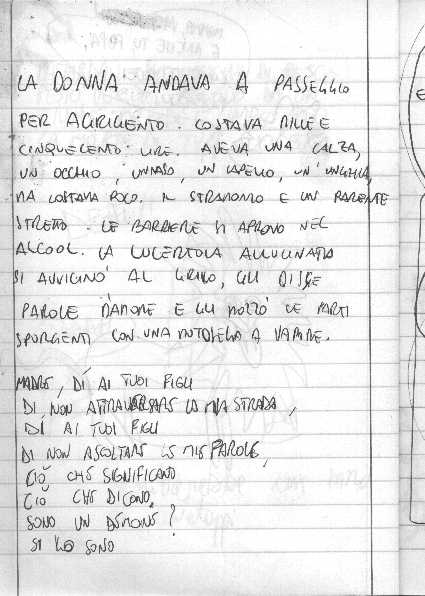 LA DONNA ANDAVA A PASSEGGIO
PER AGRIGENTO. COSTAVA MILLE E
CINQUECENTO LIRE. AVEVA UNA CALZA,
UN OCCHIO, UN NASO, UN CAPELLO, UN'UNGHIA,
MA COSTAVA POCO. IL STRANOMO E UN PARENTE
STRETTO. LE BARRIERE SI APRONO NEL
ALCOOL. LA LUCERTOLA ALLUCINATA
SI AVVICINÒ AL GRILLO, GLI DISSE
PAROLE D'AMORE E GLI MOZZÒ LE PARTI
SPORGENTI CON UNA MOTOSEGA A VAPORE.
MADRE, DÍ AI TUOI FIGLI
DI NON ATTRAVERSARE LA MIA STRADA,
DÍ AI TUOI FIGLI
DI NON ASCOLTARE LE MIE PAROLE,
CIÒ CHE SIGNIFICANO
CIÒ CHE DICONO.
SONO UN DEMONE?
SI LO SONO